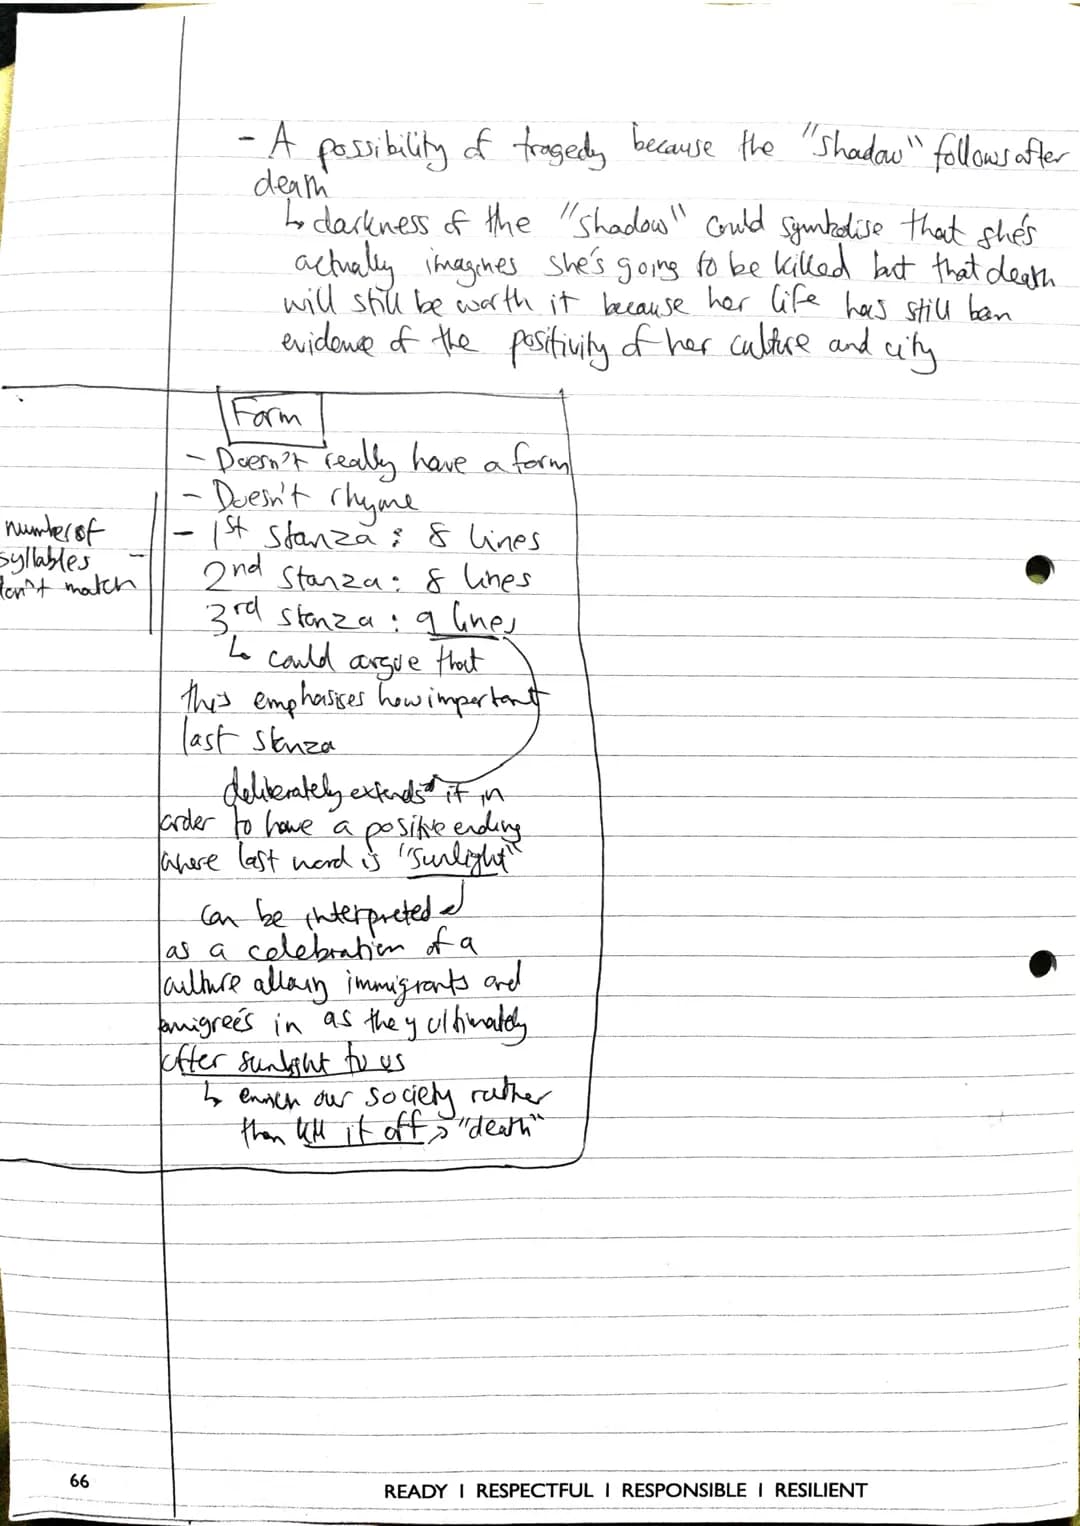 - A possibility of tragedy because the "shadow" follows after
death
↳ darkness of the "shadow" could symbolise that she's
actually imagines she's going to be killed but that death
will still be worth it because her life has still ben
evidence of the positivity of her culture and city
Form
- Doesn't really have a form
- Doesn't rhyme
- 1st stanza : 8 lines
2nd stanza : 8 lines
3rd stanza : 9 lines
number of
syllables -
don't match
↳ could argue that
this emphasises how important
last stanza
deliberately extends it in
order to have a positive ending
where last word is "sunlight"
can be interpreted
as a celebration of a
culture allowing immigrants and
emigreés in as they ultimately
offer sunlight to us
↳ enrich our society rather
than kill it off → "death"
66
READY I RESPECTFUL I RESPONSIBLE I RESILIENT